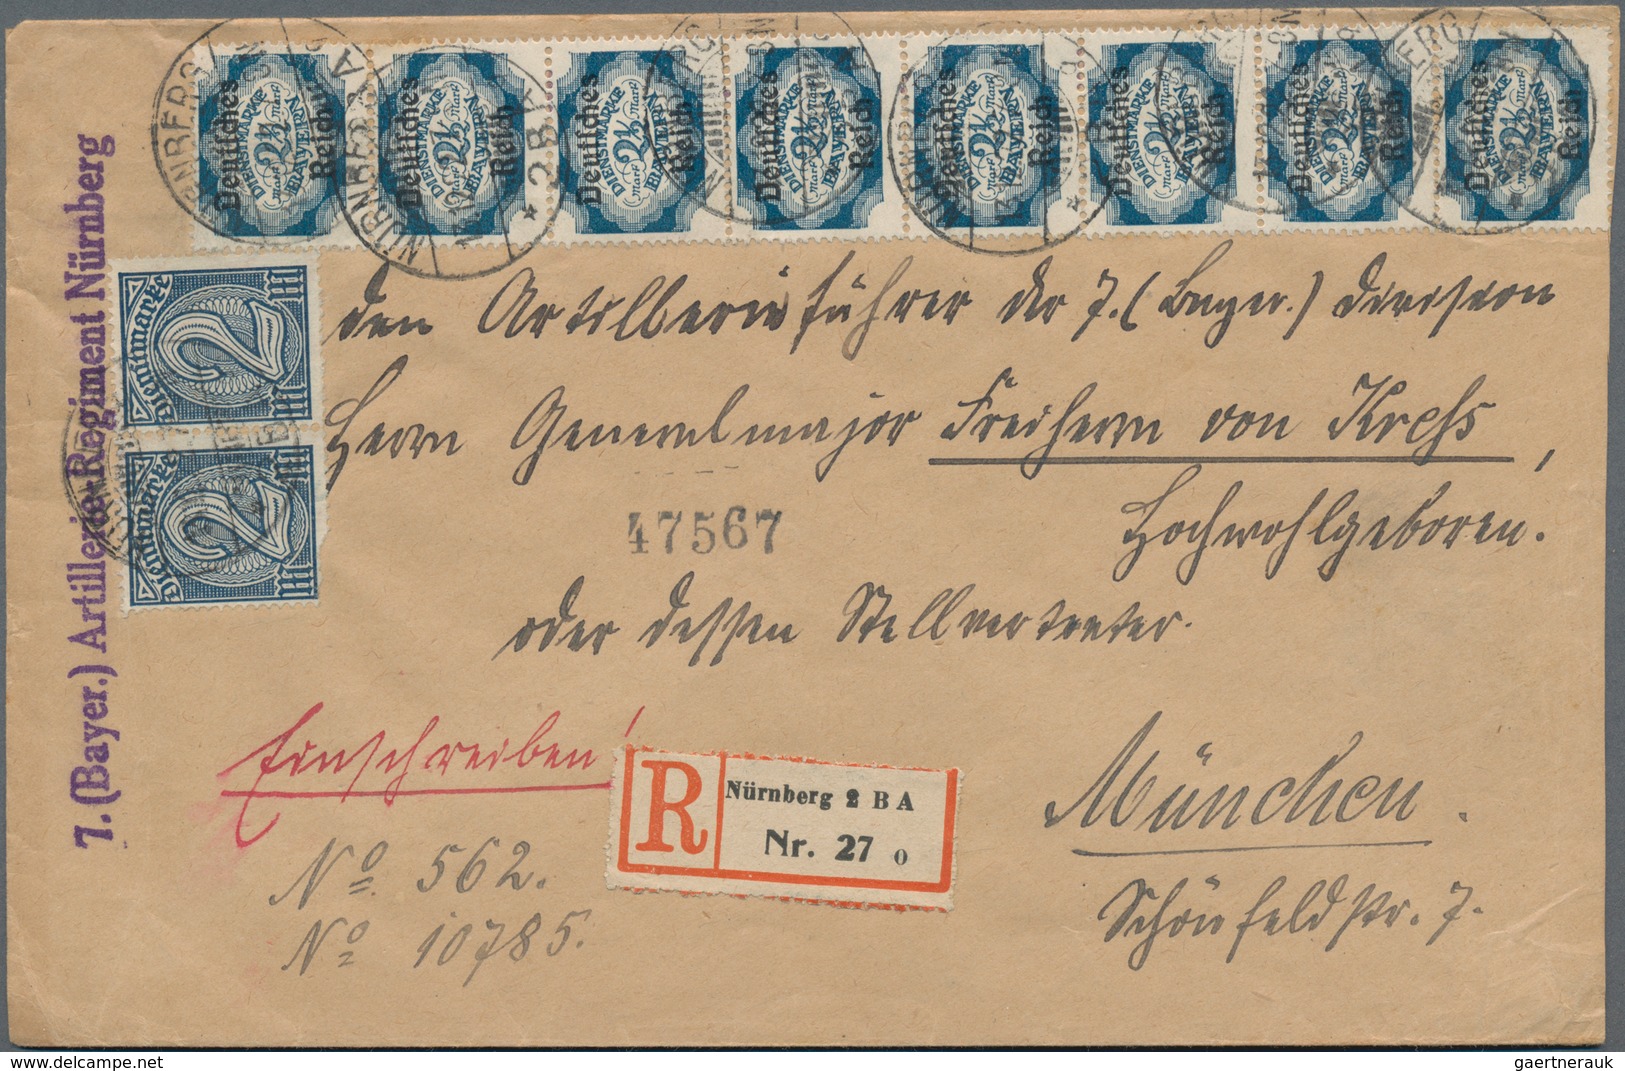 Deutsches Reich DIENSTMARKE 2½ Mark BAYERN
Deutsches Reich DIENSTMARKE 2½ Mark BAYERN
Deutsches Reich DIENSTMARKE 2½ Mark BAYERN
Deutsches Reich DIENSTMARKE 2½ Mark BAYERN
Deutsches Reich DIENSTMARKE 2½ Mark BAYERN
Deutsches Reich DIENSTMARKE 2½ Mark BAYERN
Deutsches Reich DIENSTMARKE 2½ Mark BAYERN
Deutsches Reich DIENSTMARKE 2½ Mark BAYERN
NÜRNBERG 2 B A
Dienstmarke 2 M
Dienstmarke 2 M
7. (Bayer.) Artillerie-Regiment Nürnberg
den Artillerieführer der 7. (Bayer.) Division
Herrn Generalmajor Freiherrn von Kreß,
47567
Hochwohlgeboren.
oder dessen Stellvertreter.
Einschreiben!
R
Nürnberg 2 B A
Nr. 27 o
München.
No. 562.
No 10785.
Schönfeldstr. 7.
gaertnerauk @ delcampe.net